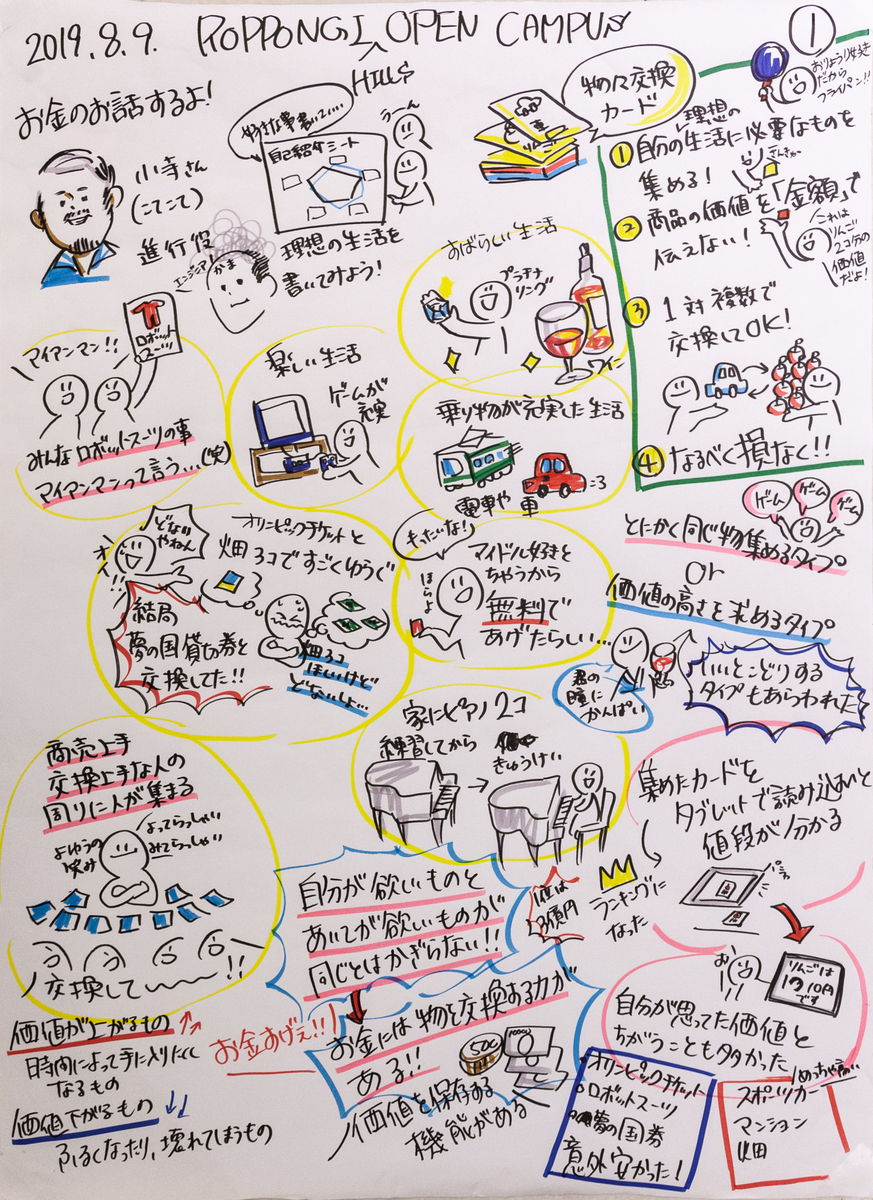 2019.8.9. ROPPONGI OPEN CAMPUS
HILLS
①
お金のお話するよ!
小寺さん
(こてこて)
進行役
好きな事書いて....
うーん
自己紹介シート
理想の生活を
書いてみよう!
エンジニア
かま
物々交換
カード
おりょうり好き
だから
フライパン!!
理想の
①自分の生活に必要なものを
集める!
②商品の価値を「金額」で
伝えない!
これは
りんご
2コ分の
価値
だよ!
③1対複数で
交換してOK!
④なるべく損なく!!
すばらしい生活
プラチナ
リング
ワイン
ロボット
スーツ
マイアンマン!!
みんなロボットスーツの事
マイアンマンって言う...(笑)
楽しい生活
ゲームが
充実
乗り物が充実した生活
電車や車
ゲーム
ゲーム
ゲーム
とにかく同じ物集めるタイプ
or
価値の高さを求めるタイプ
君の
瞳に
かんぱい
いいとこどりする
タイプもあらわれた
どない
やねん
オイ!!
オリンピックチケットと
畑3コですごくゆらぐ
結局
夢の国貸切券と
交換してた!!
畑3コ
ほしいけど
どないしょ...
もったいな!
ほらよ
マイドル好きと
ちゃうから
無料で
あげたらしい...
家にピアノ2コ
練習してから
きゅうけい
商売上手
交換上手な人の
周りに人が集まる
よゆうの
笑み
よってらっしゃい
みてらっしゃい
交換して〜〜!!
集めたカードを
タブレットで読み込むと
値段が分かる
ランキングに
なった
1位は
3億円
自分が欲しいものと
あいてが欲しいものが
同じとはかぎらない!!
お
りんごは
1つ10円
です
自分が思ってた価値と
ちがうことも多かった
お金すげぇ!!
お金には物を交換する力が
ある!!
価値を保存する
機能がある
価値が上がるもの
時間によって手に入りにくく
なるもの
価値下がるもの
ふるくなったり、壊れてしまうもの
オリンピックチケット
ロボットスーツ
夢の国券
意外安かった!
めっちゃ高い
スポーツカー
マンション
畑